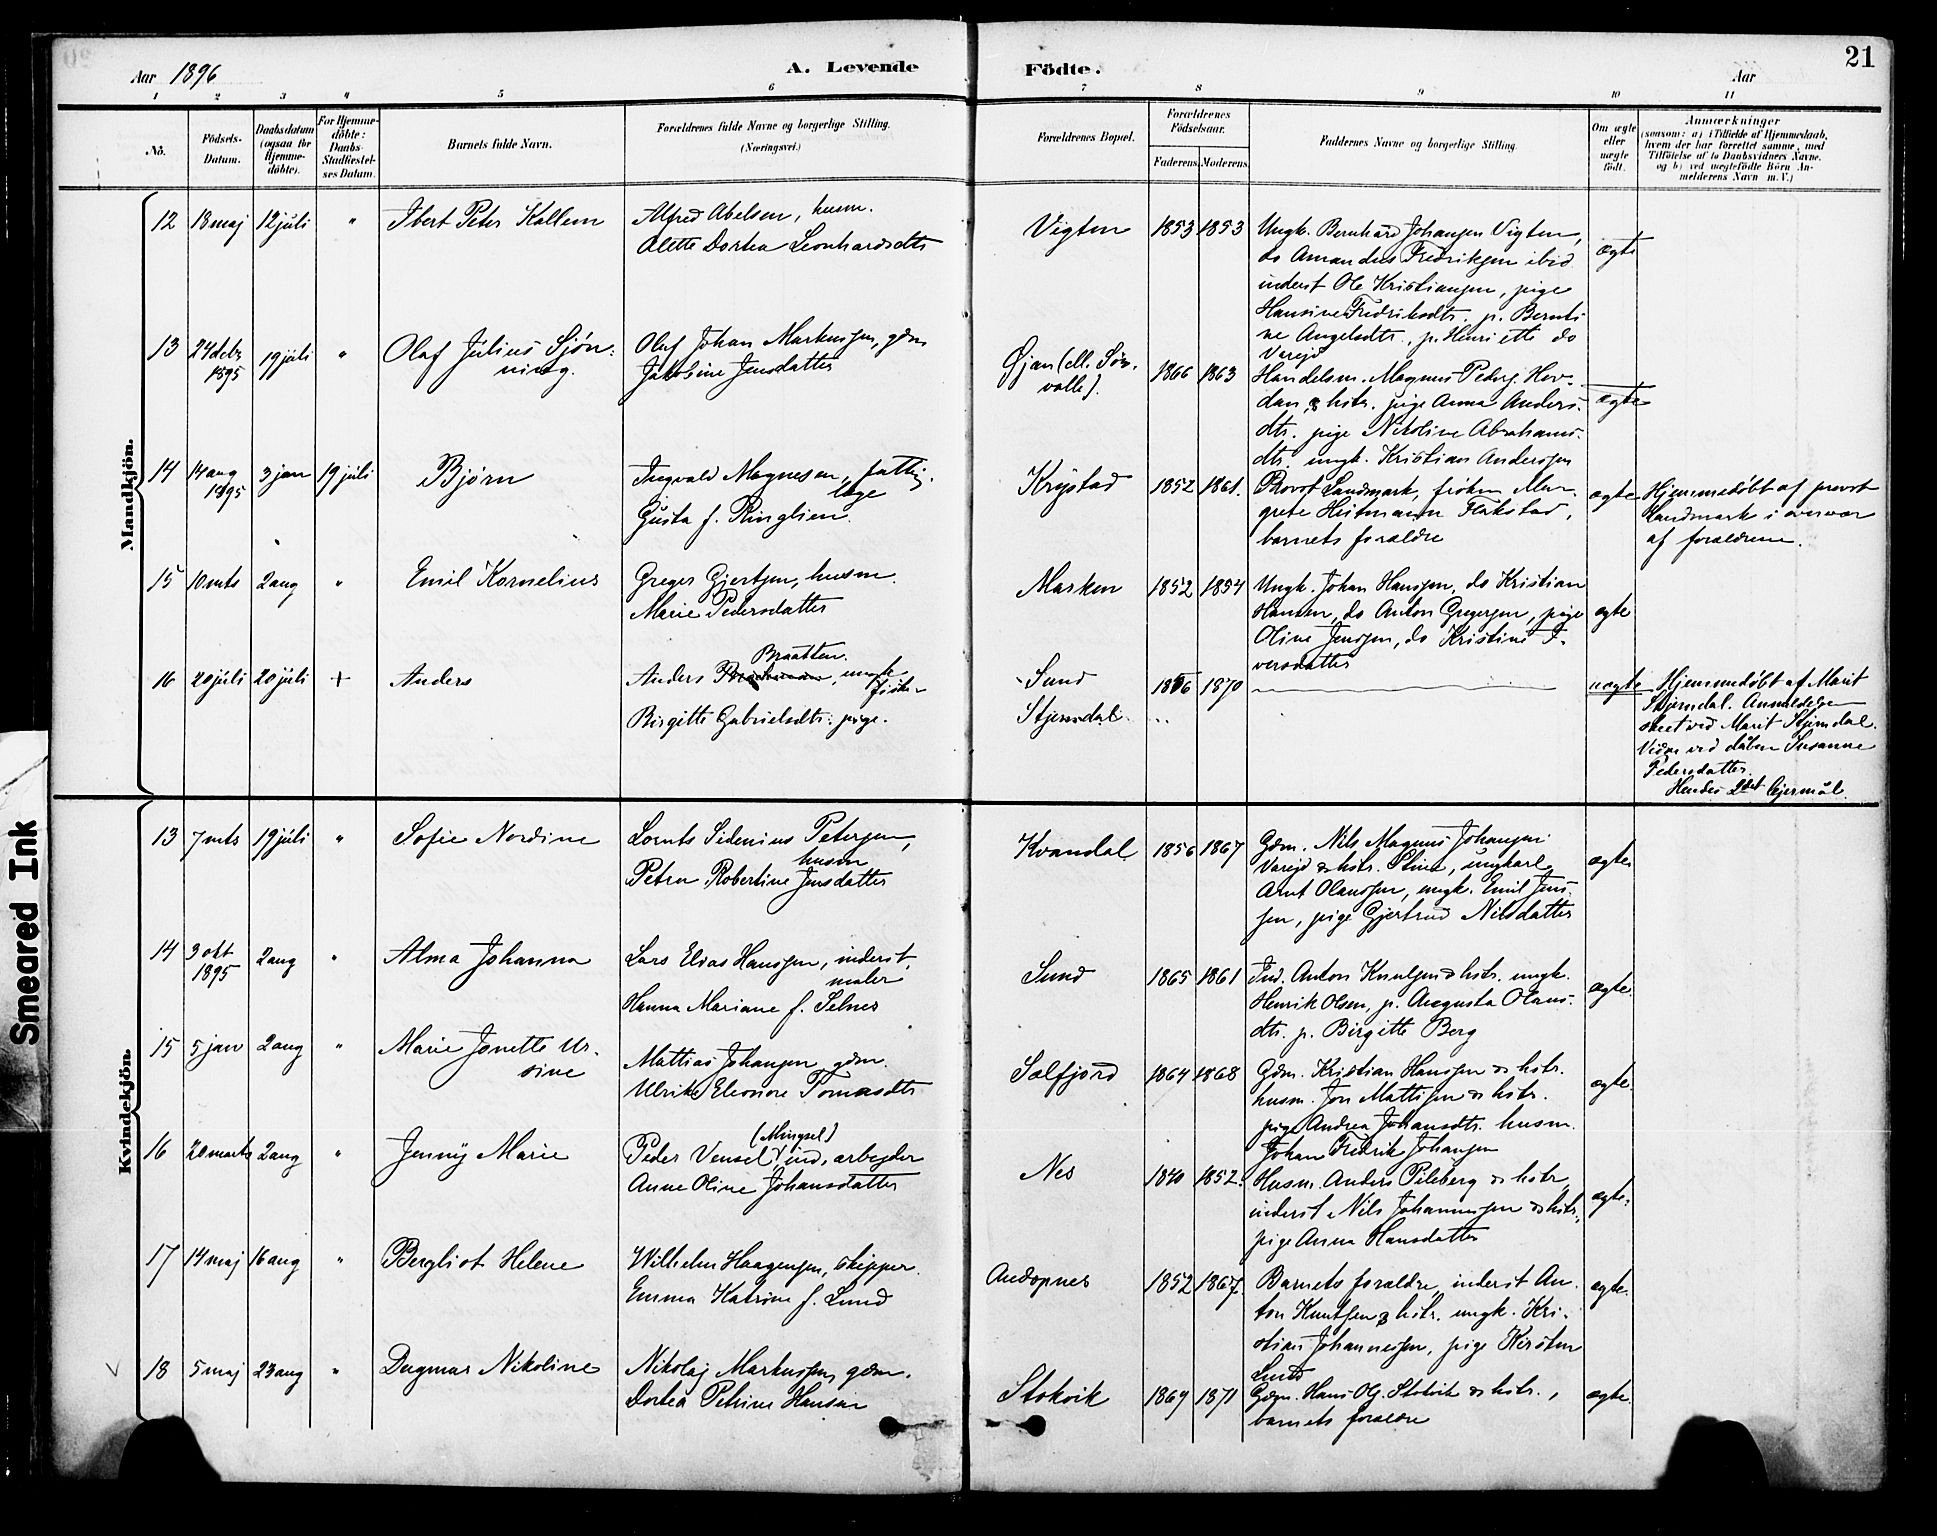 Aar 1896
A. Levende
Födte.
Aar
21
1 2 3 4 5 6 7 8 9 10 11
No.
Födsels-
Datum.
Daabsdatum
(ogsaa for
Hjemme-
döbte).
For Hjemme-
döbte:
Daabs-
Stadfæstel-
ses Datum.
Barnets fulde Navn.
Forældrenes fulde Navne og borgerlige Stilling.
(Næringsvei.)
Forældrenes Bopæl.
Forældrenes
Födselsaar.
Faderens. Moderens.
Faddernes Navne og borgerlige Stilling.
Om ægte
eller
uægte
født.
Anmærkninger
(saasom: a) i Tilfælde af Hjemmedaab,
hvem der har forrettet samme, med
Tilföielse af to Daabsvidners Navne.
og b) ved uægtefödte Börn An-
melderens Navn m. V.)
Mandkjön.
12 18 maj 12 juli " Ibert Peter Kallem
Alfred Abelsen, husm.
Alette Dortea Leonhardsdtr
Vigten 1853 1853
Ungk. Bernhard Johansen Vigten,
do Amandus Fredriksen ibid
inderst Ole Kristiansen, pige
Hansine Fredriksdtr. p. Bernti
ne Angelsdtr., p. Henriette do
Varejd
ægte
13 24 debr
1895
19 juli " Olaf Julius Sjøn-
ning.
Oluf Johan Markussen, gdm
Jakobine Jensdatter
Øjan (ell. Søn-
valle).
1866 1863
Handelsm. Magnus Peders. Hov-
dan, & hstr. pige Anna Anders-
dtr. pige Nikoline Abrahams-
dtr. ungk. Kristian Andersen
ægte
14 14 aug
1895
3 jan 19 juli Bjørn
Ingvald Magnesen, fattig-
læge
Gusta f. Ringlien.
Krystad 1852 1861.
Provst Landmark, frøken Mar-
grete Heitmann Flakstad,
barnets forældre
ægte
Hjemmedøbt af provst
Landmark i overvær
af forældrene.
15 10 mts 2 aug " Emil Kornelius
Greger Gjertsen, husm.
Marie Pedersdatter
Marken 1852 1854
Ungk. Johan Hanssen, do Kristian
Hansen, do Anton Gregersen, pige
Oline Jenssen, do Kristine I-
versdatter
ægte
16 20 juli 20 juli + Anders
Braatten.
Anders, ungk
fisker
Birgitte Gabrielsdtr. pige.
Sund
Stjerndal.
1866 1870
uægte
Hjemmedøbt af Marit
Stjerndal. Anmeldelsen
skeet ved Marit Stjerndal.
Vidne ved dåben Susanne
Pedersdatter.
Hendes 2det lejermål.
Kvindekjön.
13 7 mts 19 juli " Sofie Nordine
Lornts Sidenius Petersen,
husm
Petra Robertine Jensdatter
Kvandal 1856 1867
Gdm. Nils Magnus Johansen
Varejd & hstr. Stina, ungkarl
Arnt Olaussen, ungk. Emil Jens-
sen, pige Gjertrud Nilsdatter
ægte
14 3 okt
1895
2 aug " Alma Johanna
Lars Elias Hanssen, inderst,
maler
Hanna Mariane f. Selnes
Sund 1865 1861
Ind. Anton Knutsen & hstr. ungk.
Henrik Olsen, p. Augusta Olaus-
dtr. p. Birgitte Berg
ægte.
15 5 jan 2 aug " Marie Jonette Ur-
sine
Mattias Johansen gdm.
Ulrikke Eleonore Tomasdtr
Selfjord 1864 1868
Gdm. Kristian Hanssen & hstr.
husm. Jon Mattisen & hstr.
pige Andrea Johansdtr. husm.
Johan Fredrik Johansen
ægte.
16 20 marts 2 aug " Jenny Marie
(Mingsel)
Peder Vensel ind., arbejder
Anne Oline Johansdatter
Nes 1840 1852.
Husm. Anders Pileberg & hstr.
inderst Nils Johannessen & hstr.,
pige Anna Hansdatter
ægte.
17 14 maj 16 aug " Bergliot Helene
Wilhelm Haagensen, skipper.
Emma Katrine f. Lund
Andopnes 1852 1867.
Barnets forældre, inderst An-
ton Knutsen & hstr. ungk. Kri-
stian Johannessen, pige Kirsten
Lund
ægte.
18 5 maj 23 aug " Dagmar Nikoline
Nikolaj Markussen, gdm.
Dortea Petrine Hansen
Stokvik 1869 1871
Gdm. Hans Ol. Stokvik & hstr.,
barnets forældre
ægte.
Smeared Ink